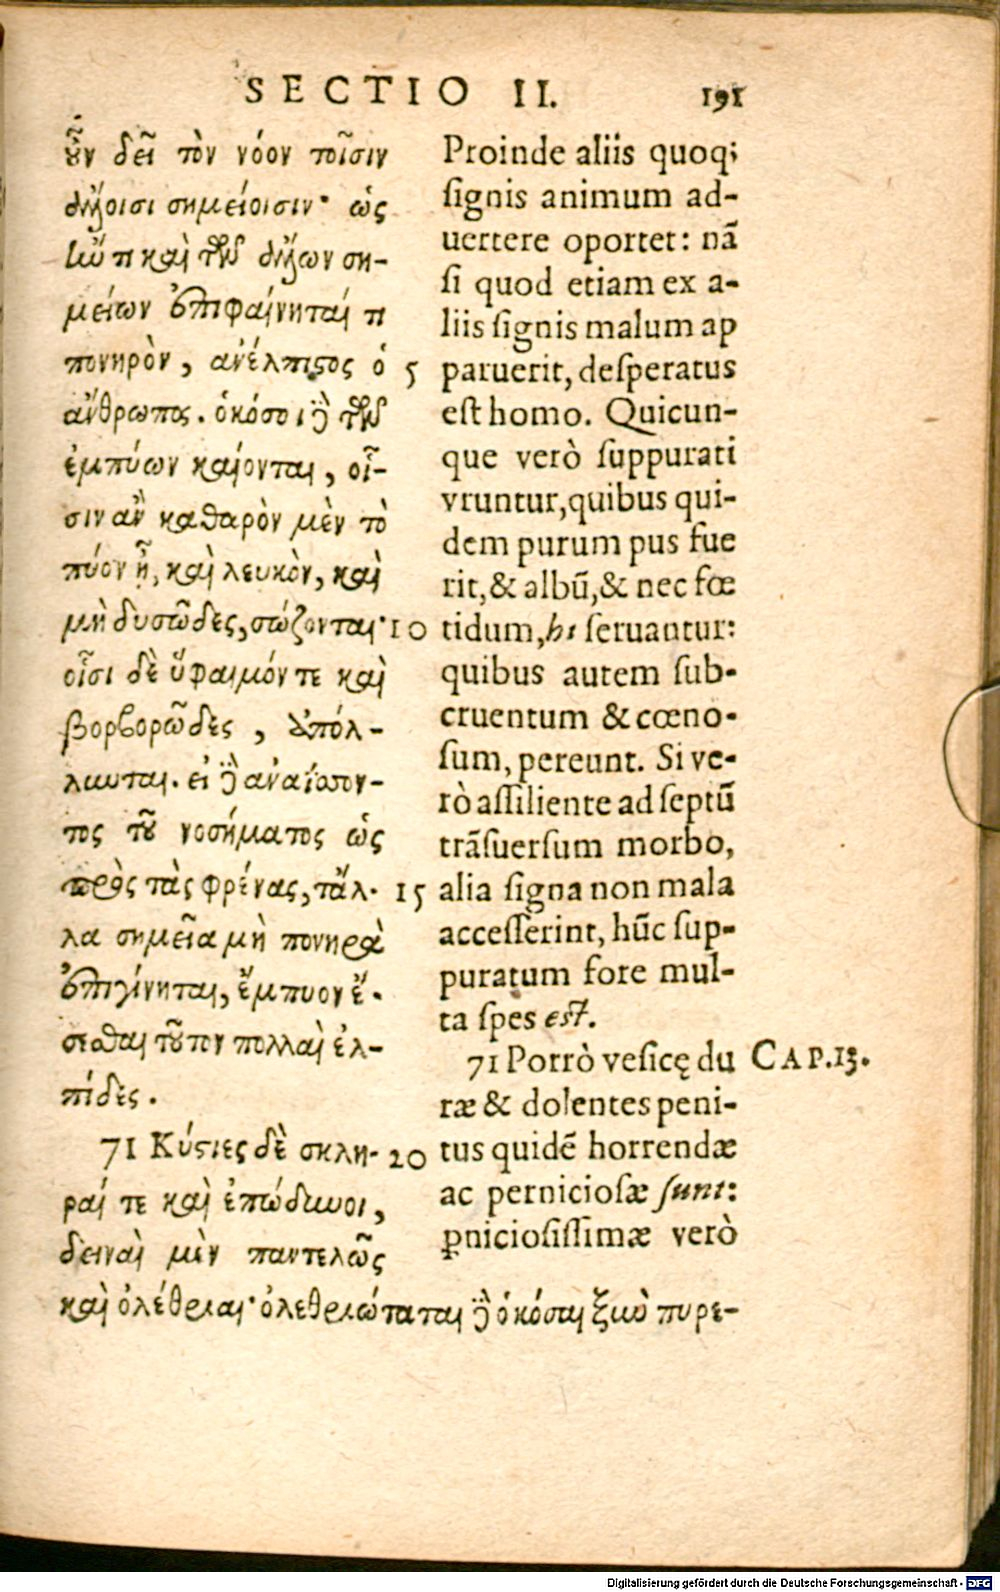 SECTIO II. 191
οὖν δεῖ τὸν νόον τοῖσιν
ἄλλοισι σημείοισιν· ὡς
ἢν τι καὶ τῶν ἄλλων ση-
μείων ἐπιφαίνηταί τι
πονηρὸν, ἀνέλπιστος ὁ
ἄνθρωπος. ὁκόσοι δὲ τῶν
ἐμπύων καίονται, οἷ-
σιν ἂν καθαρὸν μὲν τὸ
πύον ᾖ, καὶ λευκὸν, καὶ
μὴ δυσῶδες, σώζονται·
οἷσι δὲ ὕφαιμόν τε καὶ
βορβορῶδες, ἀπόλ-
λυνται. εἰ δὲ
τος τοῦ νοσήματος ὡς
πρὸς τὰς φρένας, τἄλ-
λα σημεῖα μὴ πονηρὰ
ἐπιγίνηται, ἔμπυον ἔ-
σεσθαι τοῦτον πολλαὶ ἐλ-
πίδες.
71 Κύστιες δὲ σκλη-
ραί τε καὶ ἐπώδυνοι,
δειναὶ μὲν παντελῶς
καὶ ὀλέθριαι· ὀλεθριώταται δὲ ὁκόσαι ξὺν πυρε-
5
10
15
20
Proinde aliis quoq;
signis animum ad-
uertere oportet: nã
si quod etiam ex a-
liis signis malum ap
paruerit, desperatus
est homo. Quicun-
que verò suppurati
vruntur, quibus qui-
dem purum pus fue
rit, & albũ, & nec fœ
tidum, hi seruantur:
quibus autem sub-
cruentum & cœno-
sum, pereunt. Si ve-
rò assiliente ad septũ
trãsuersum morbo,
alia signa non mala
accesserint, hũc sup-
puratum fore mul-
ta spes est.
71 Porrò vesicę du
ræ & dolentes peni-
tus quidẽ horrendæ
ac perniciosæ sunt:
ꝑniciosissimæ verò
CAP.13.
Digitalisierung gefördert durch die Deutsche Forschungsgemeinschaft - DFG